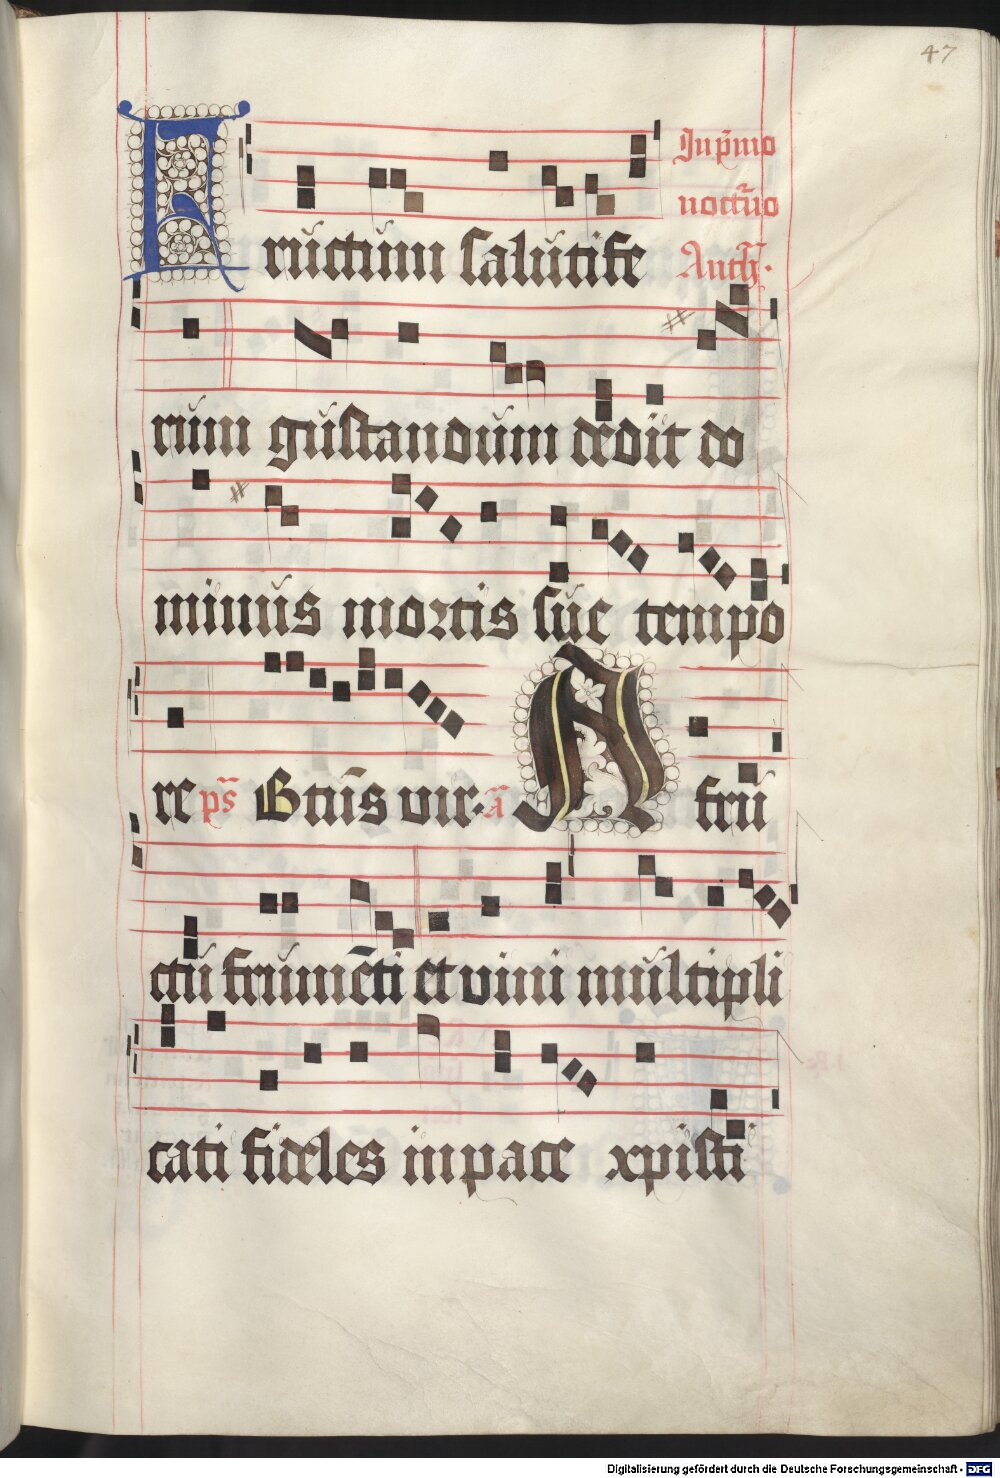 47
Fructum salutife In p̄mo
noctũo
Anth̃.
rum gustandum dedit do
minus mortis sue tempo
re ps̃ Btũs vir. ã A fru
ctũ frumẽti et vini multipli
cati fideles in pace xpisti
Digitalisierung gefördert durch die Deutsche Forschungsgemeinschaft - DFG